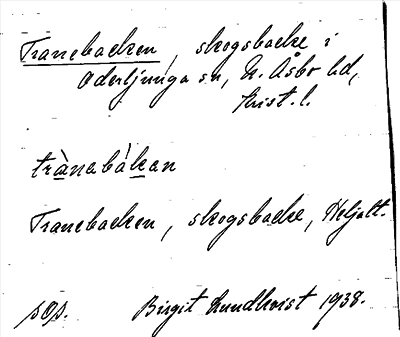 Tranebacken, skogsbacke i
Oderljunga sn, N. Åsbo hd,
Krist. l.
trànabákan
Tranebacken, skogsbacke,
sOp. Birgit Lundkvist 1938.